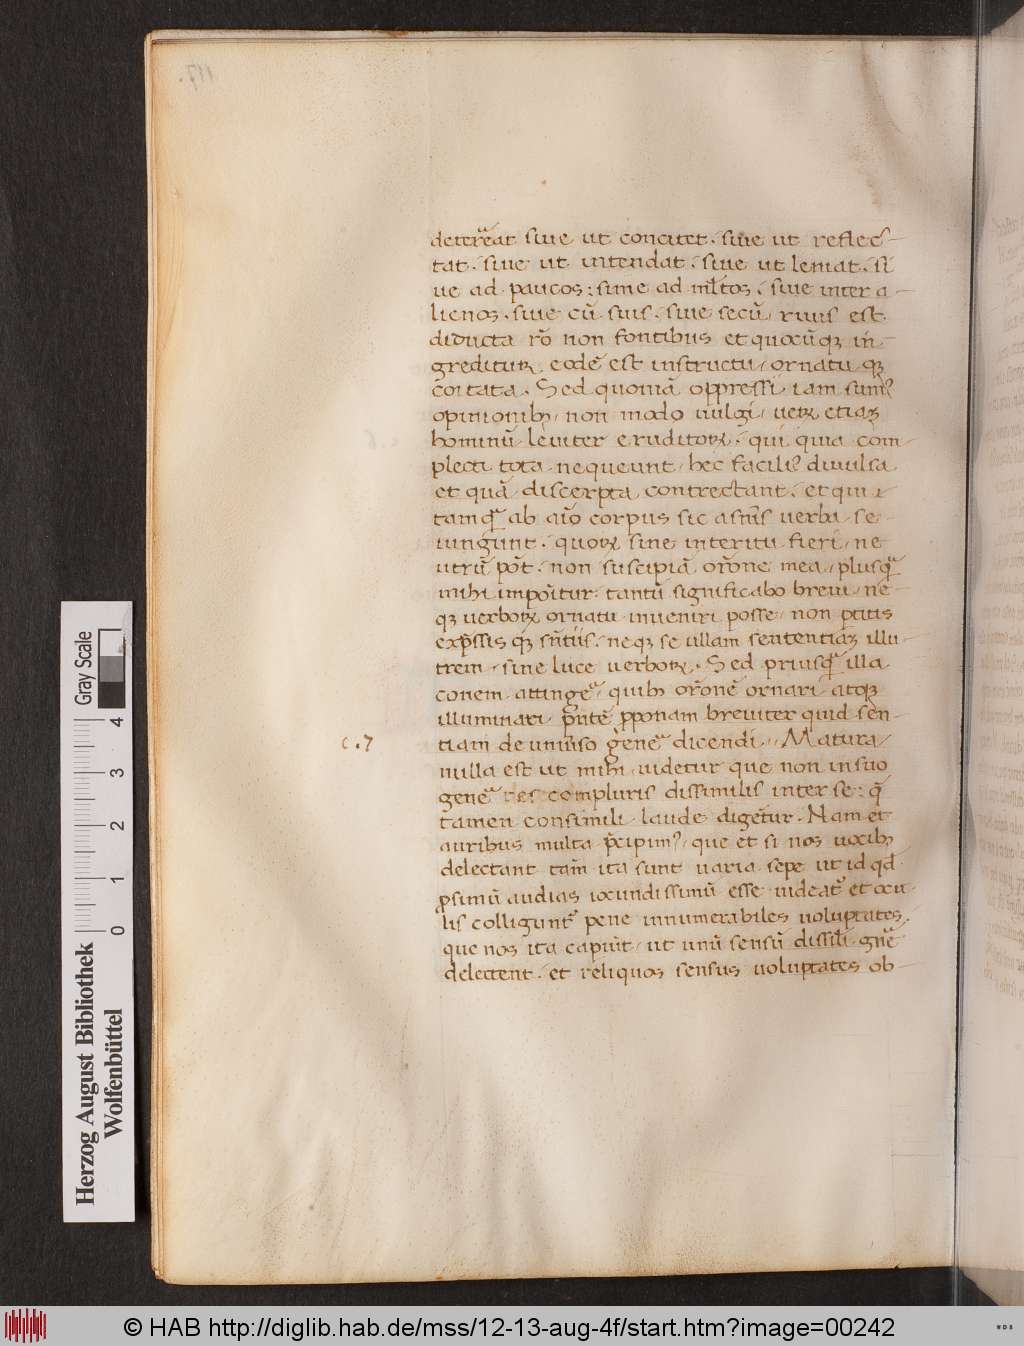 deterreat siue ut concitet. siue ut reflec-
tat. siue ut intendat. siue ut leniat. si
ue ad paucos: siue ad ml̄tos. siue inter a-
lienos. siue cū suis. siue secū. riuis est
diducta rō non fontibus et quocūqꝫ in-
greditur eodē est instructu ornatuqꝫ
Sed quoniā oppressi iam sum᾽
opinionibꝫ non modo uulgi ueꝝ etiaꝫ
hominū leuiter eruditoꝝ. qui quia com-
plecti tota nequeunt hec facili᾽ diuulsa
et quasi discerpta contrectant. et qui
tamqᷓ ab aīo corpus sic a sn̄iis uerba se-
iungunt. quoꝝ sine interitu fieri ne
utrū pōt. non suscipiā orōne mea plusqᷓ
mihi imponitur: tantū significabo breui ne-
qꝫ uerboꝝ ornatū inueniri posse non ptitis
exp̄ssisqꝫ sn̄tiis. neqꝫ esse ullam sententiaꝫ illu-
trem sine luce uerboꝝ. Sed priusqᷓ illa
conem attingere quibꝫ orōnē ornari atqꝫ
illuminari proponam breuiter quid sen-
tiam de uniuerso genere dicendi. Natura
c. 7
nulla est ut mihi uidetur que non in suo
genere res compluris dissimilis inter se: q̄
tamen consimili laude digētur. Nam et
auribus multa p̄cipim᾽ que et si nos uocibꝫ
delectant tam̄ ita sunt uaria sepe ut id qd̄
proximū audias iocundissimū esse uideat᾽ et ocu-
lis colligunt᾽ pene innumerabiles uoluptates.
que nos ita capiūt ut unū sensū dissīli gn̄e
delectent. et reliquos sensus uoluptates ob-
Gray Scale
4 3 2 1 0
Herzog August Bibliothek
Wolfenbüttel
© HAB http://diglib.hab.de/mss/12-13-aug-4f/start.htm?image=00242